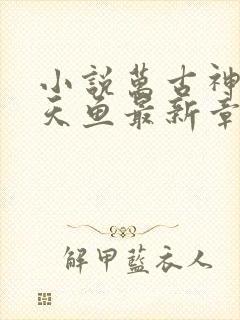 小說萬古神
天魚最新章
解甲藍衣人